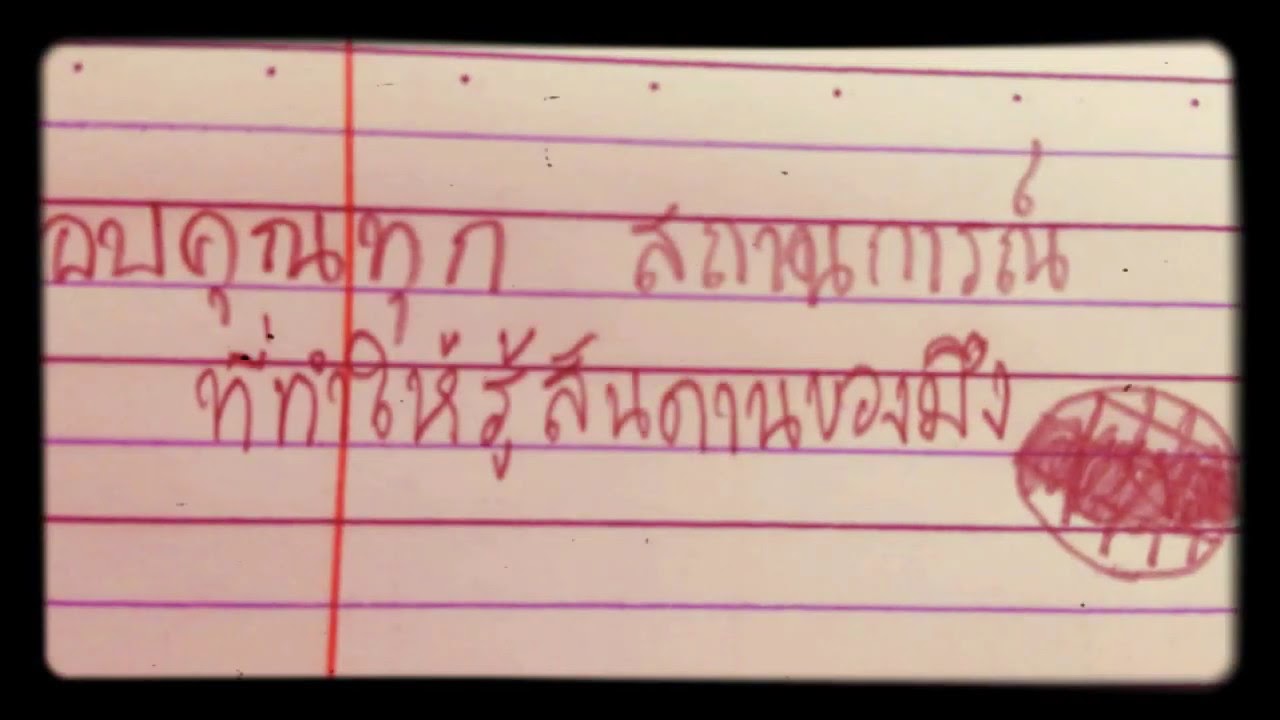 อบคุณทุก สถานการณ์
ที่ทำให้รู้สันดานของมึง